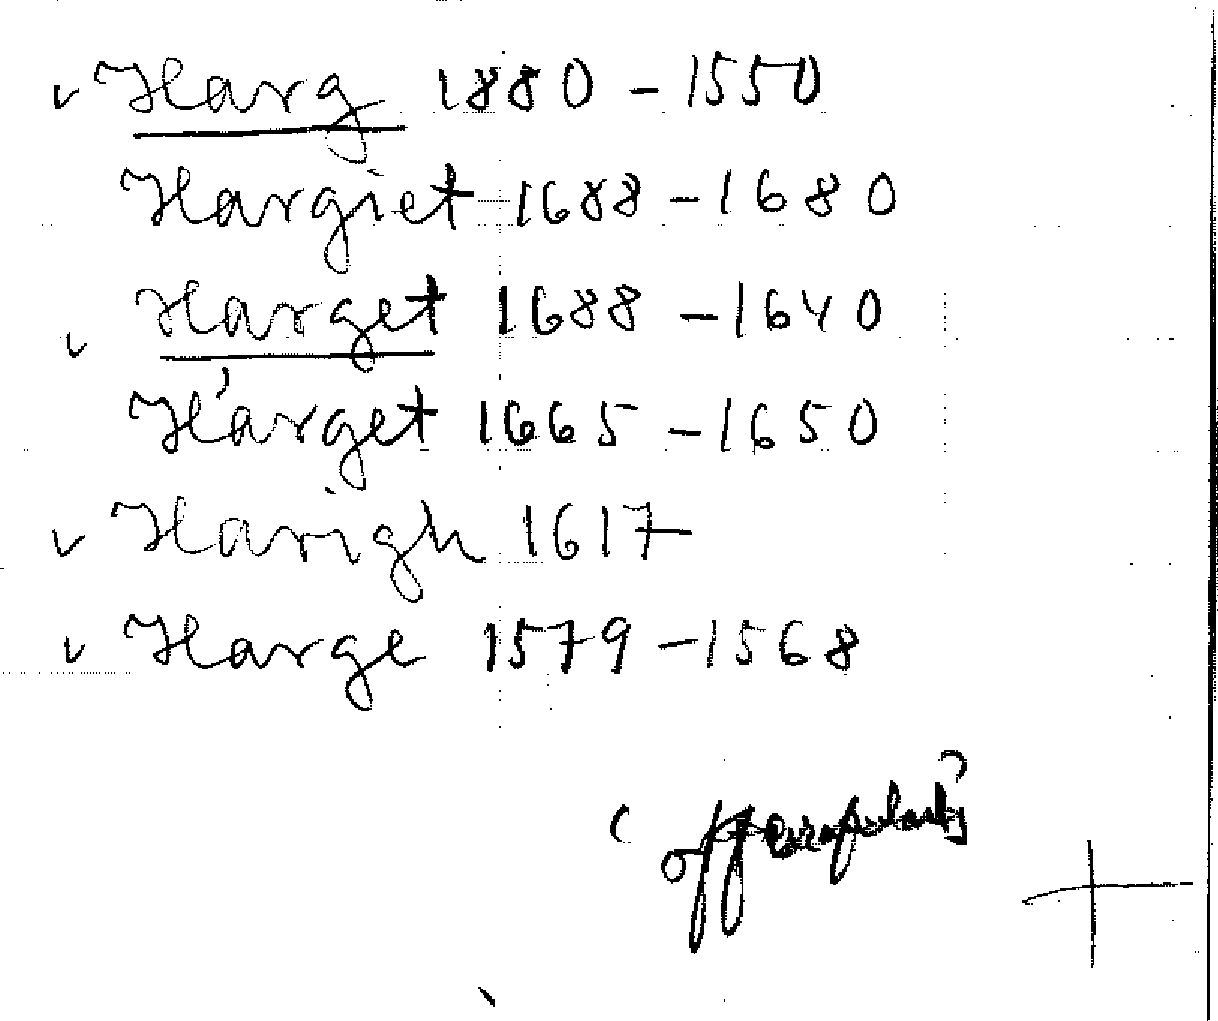 ✓ Harg 1880 - 1550
Hargiet 1688 - 1680
✓ Harget 1688 - 1640
Hárget 1665 - 1650
✓ Harigh 1617
✓ Harge 1579 - 1568